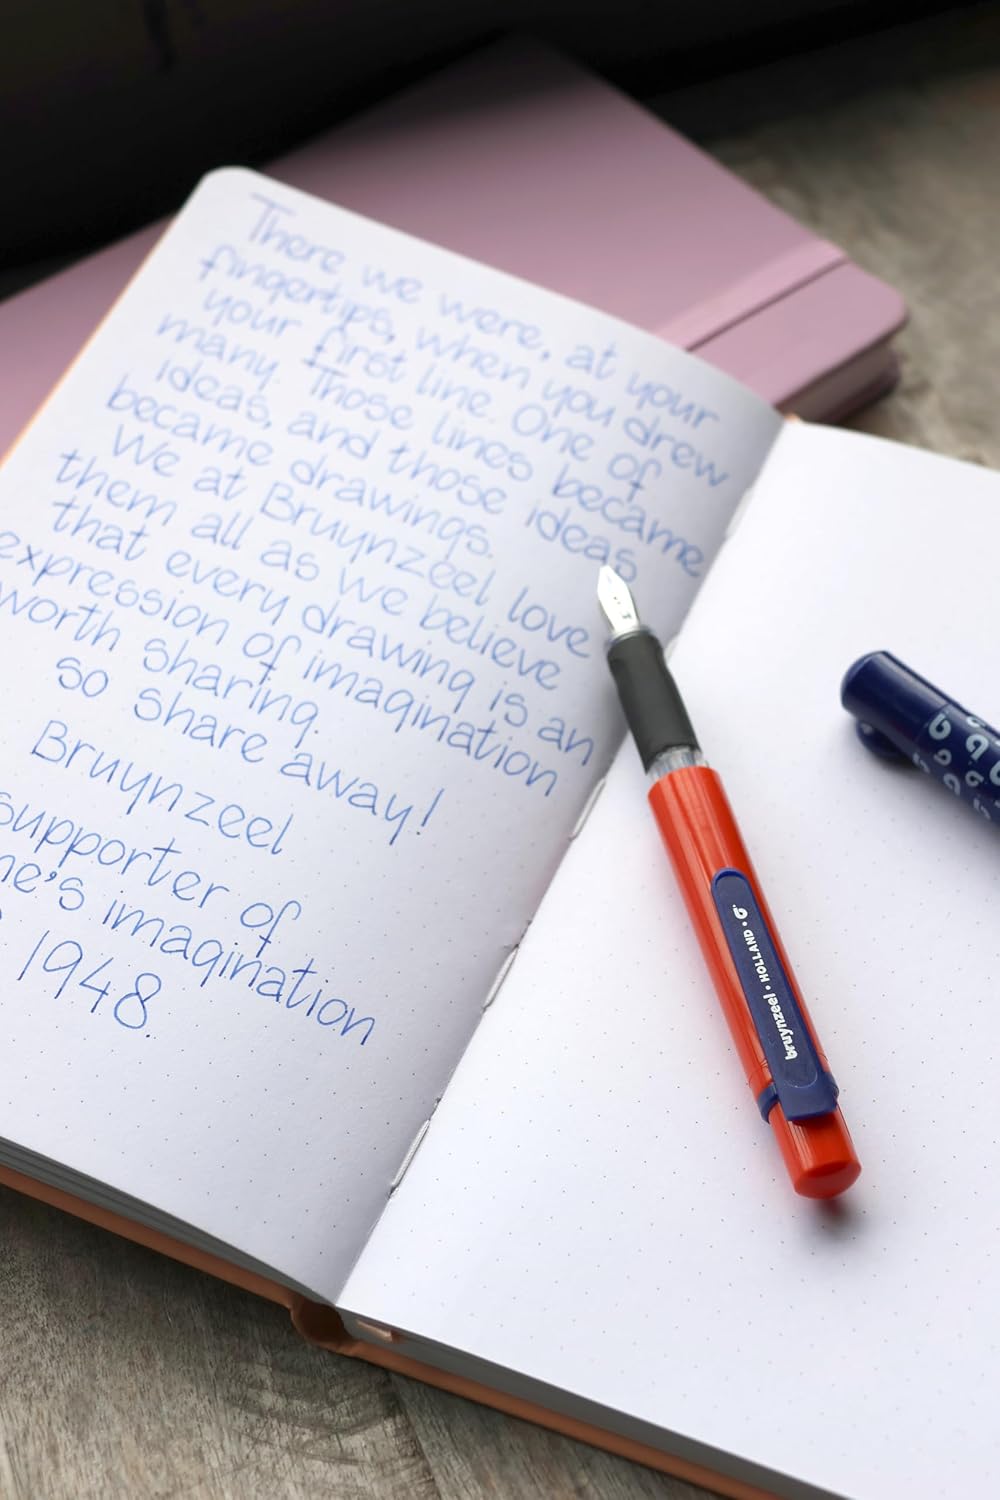 There we were, at your
fingertips, when you drew
your first line. One of
many. Those lines became
ideas, and those ideas
became drawings.
We at Bruynzeel love
them all as we believe
that every drawing is an
expression of imagination
worth sharing.
So share away!
Bruynzeel
supporter of
ne's imagination
1948.
bruynzeel • HOLLAND • b